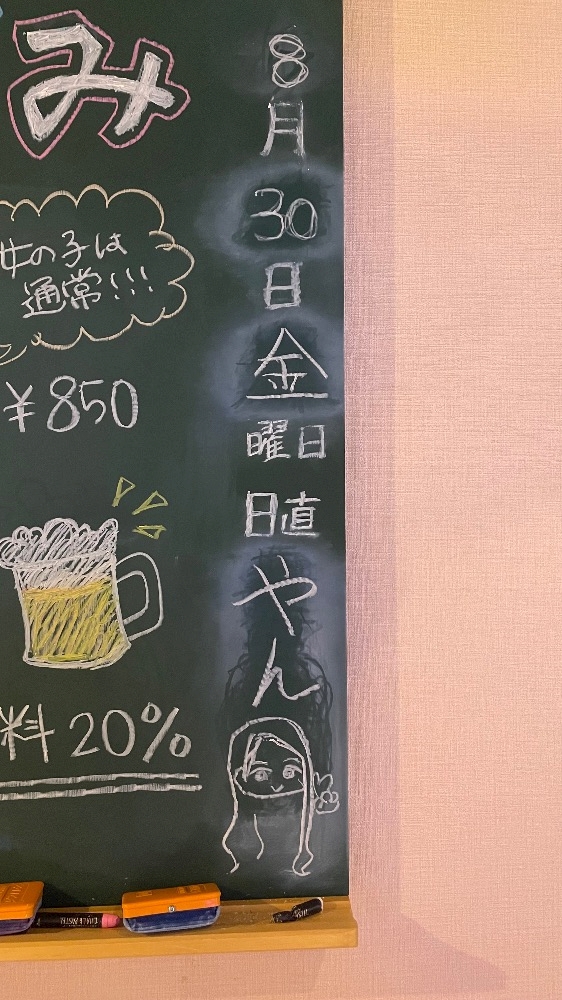 み
女の子は
通常!!!
¥850
料20%
8
月
30
日
金
曜日
日直
やん